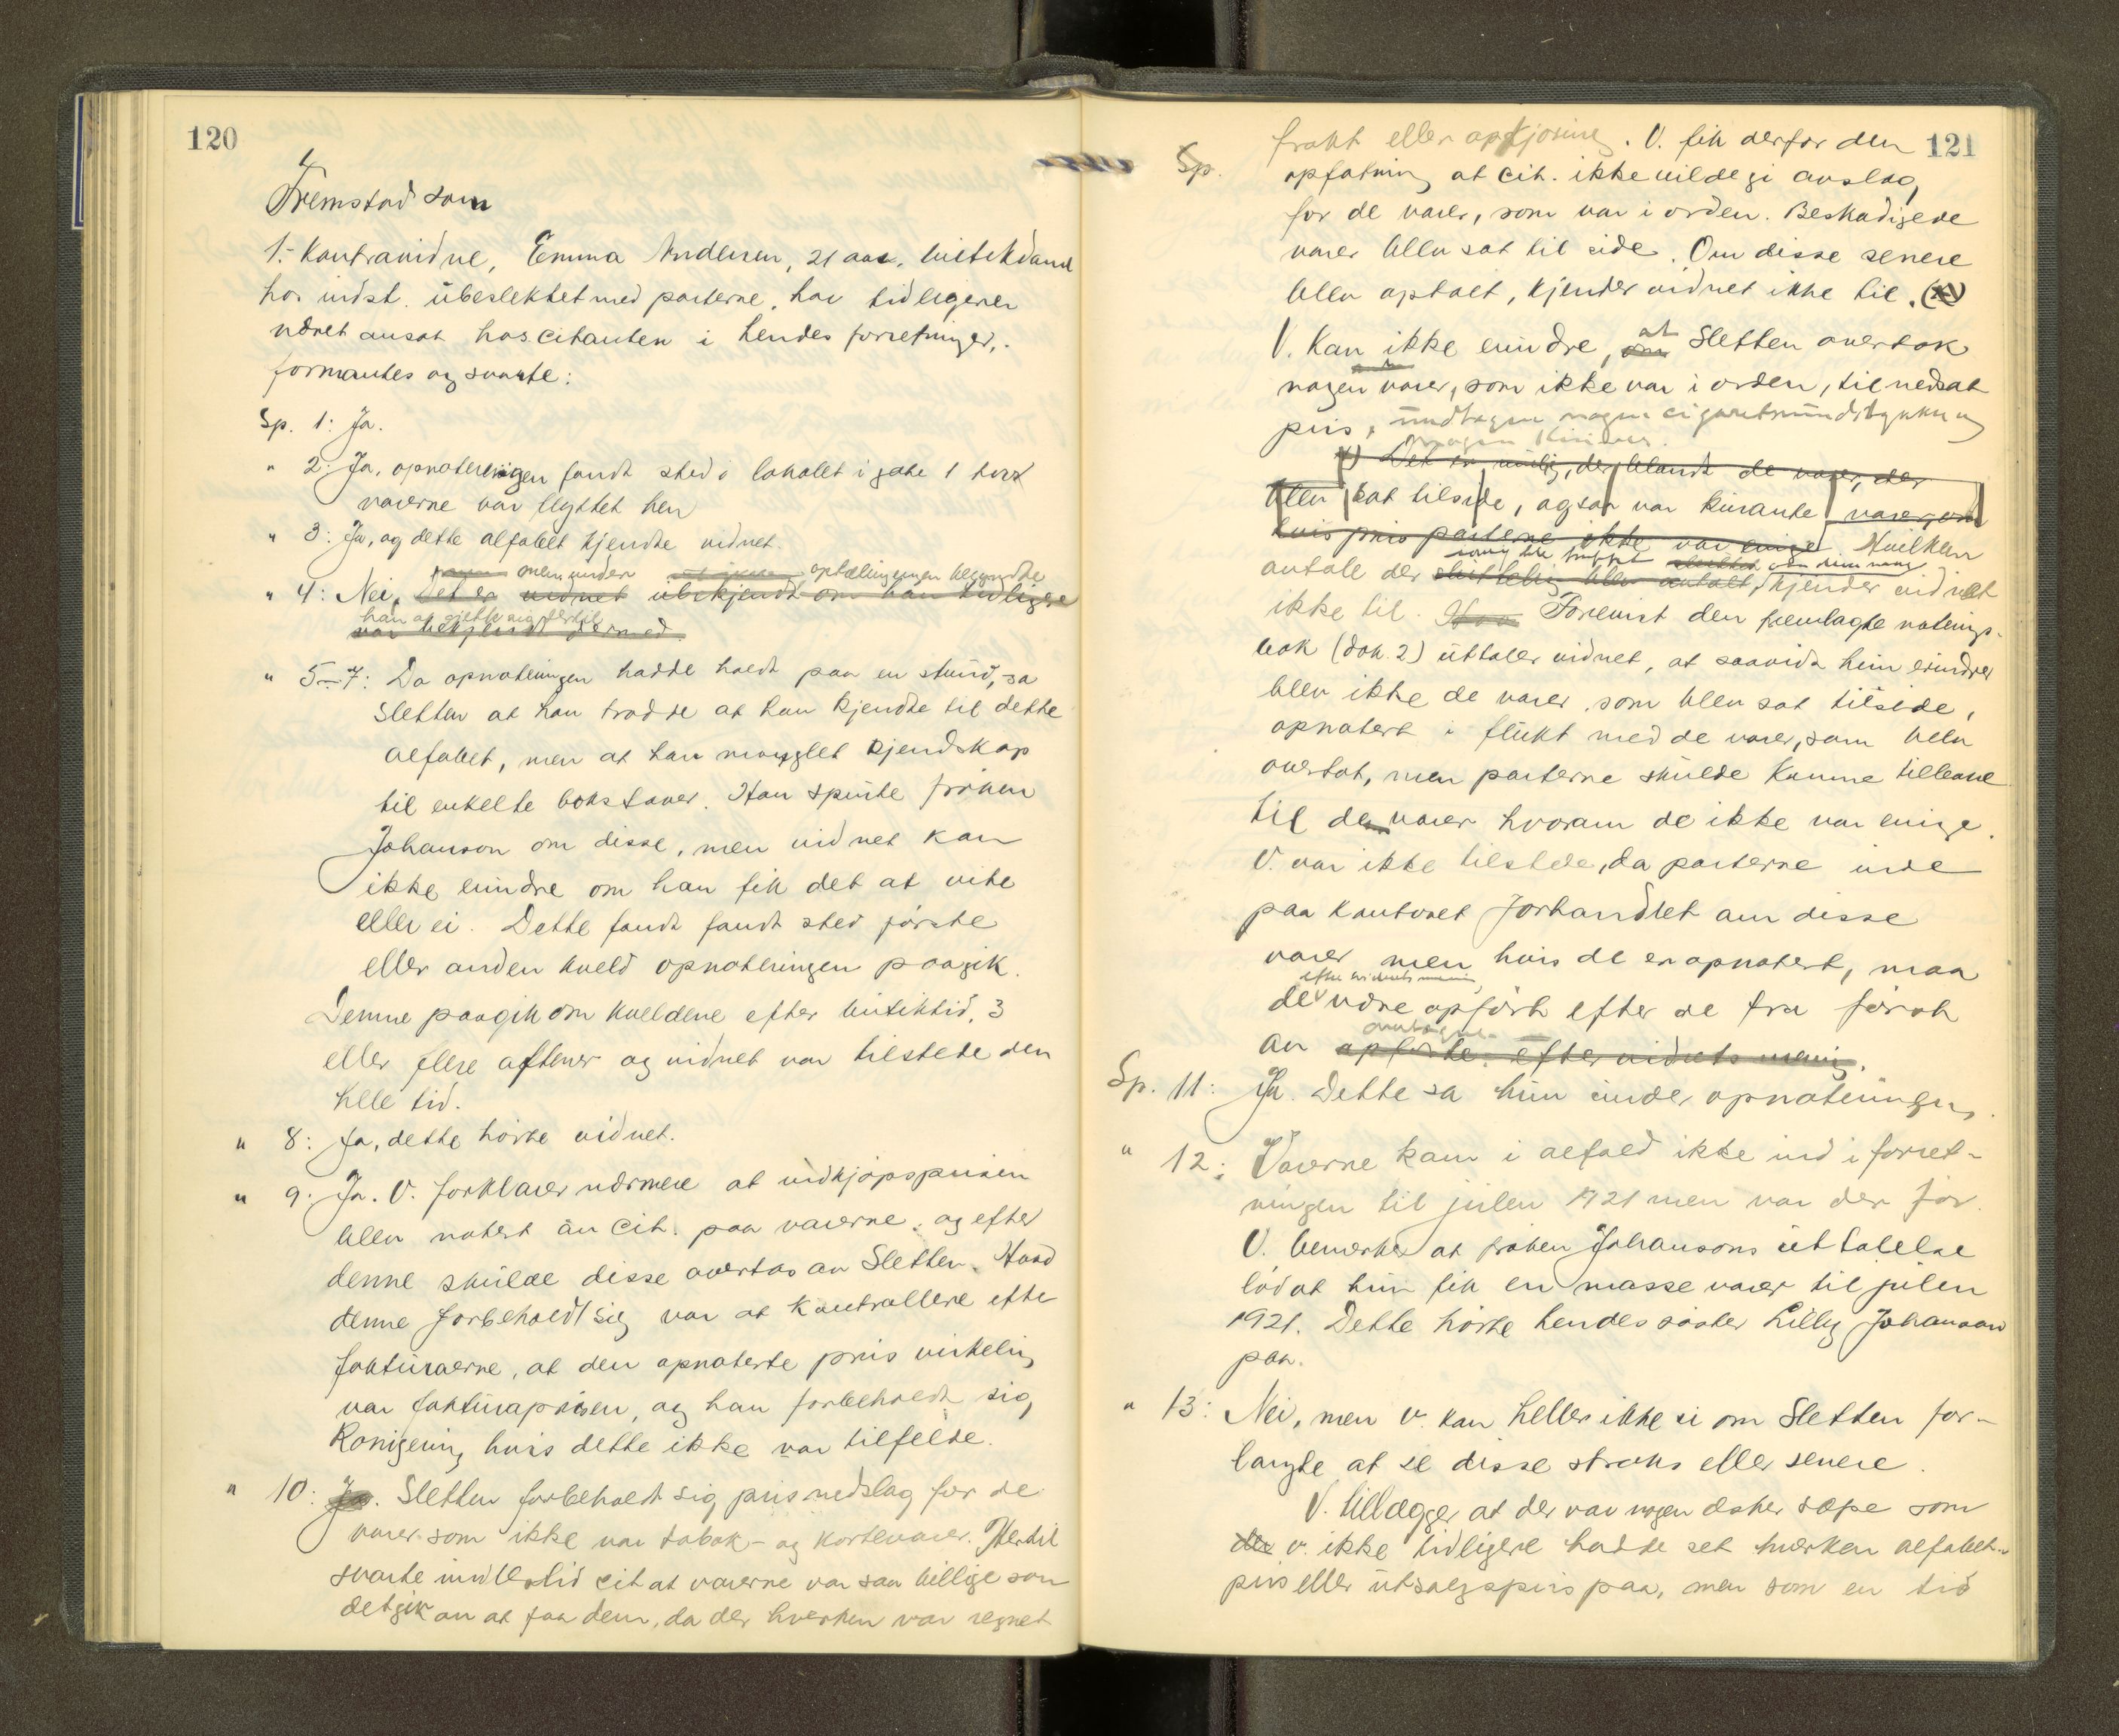 120
Fremstod som
1. Kontravidne, Emma Andersen, 21 aar, butikdame
hos indst. ubeslektet med parterne, har tidligere
været ansat hos citanten i hendes forretninger,
formantes og svarte:
Sp. 1: Ja.
" 2: Ja, opnoteringen fandt sted i lokalet i gate 1 hvor
varerne var flyttet hen
" 3: Ja, og dette alfabet kjendte vidnet.
men inden optællingen begyndte
" 4: Nei, det er vidnet ubekjendt om han tidligere
han at gjette sig dertil
var bekjendt dermed.
" 5-7: Da opnoteringen hadde holdt paa en stund, sa
Sletten at han trodde at han kjendte til dette
alfabet, men at han manglet kjendskap
til enkelte bokstaver. Han spurte frøken
Johanson om disse, men vidnet kan
ikke erindre om han fik det at vite
eller ei. Dette fandt fandt sted første
eller anden kveld opnoteringen paagik.
Denne paagik om kveldene efter butiktid, 3
eller flere aftener og vidnet var tilstede den
hele tid.
" 8: Ja, dette hørte vidnet.
" 9: Ja. V. forklarer nærmere at indkjøpsprisen
blev notert av cit. paa varerne og efter
denne skulde disse overtas av Sletten. Hvad
denne forbeholdt sig var at kontrollere efter
fakturaerne, at den opnoterte pris virkelig
var fakturaprisen, og han forbeholdt sig
korrigering hvis dette ikke var tilfelde.
" 10: Ja. Sletten forbeholdt sig prisnedslag for de
varer som ikke var tobak- og kortevarer. Hertil
svarte imidlertid cit at varerne var saa billige som
det gik an at faa dem, da der hverken var regnet
121
Sp. frakt eller opkjøring. V. fik derfor den
opfatning at cit. ikke vilde gi avslag,
for de varer, som var i orden. Beskadigede
varer blev sat til side. Om disse senere
blev optalt, kjender vidnet ikke til. (x)
at
V. kan ikke erindre, om Sletten overtok
nogen varer, som ikke var i orden, til nedsat
pris, undtagen nogen cigaretmundstykker og
nogen
x) Det er mulig, der blandt de varer, der
blev sat tilside, ogsaa var kurante varer, om
hvis pris parterne ikke var enige. Hvilken
antall der kjender vidnet
ikke til. Forevist den fremlagte noterings-
bok (dok. 2) uttaler vidnet, at saavidt hun erindrer
blev ikke de varer, som blev sat tilside,
opnotert i flukt med de varer, som blev
overtat, men parterne skulde komme tilbake
til de varer hvorom de ikke var enige.
V. var ikke tilstede, da parterne inde
paa kontoret forhandlet om disse
varer men hvis de er opnotert, maa
efter vidnets mening
de være opført efter de fra først
av opførte efter vidnets mening.
Sp. 11: Ja. Dette sa hun under opnoteringen.
" 12: Varerne kom i alfald ikke ind i forret-
ningen til julen 1921 men var der før.
V. bemerker at frøken Johansons uttalelse
lød at hun fik en masse varer til julen
1921. Dette hørte hendes søster Lilly Johanson
paa.
" 13: Nei, men v. kan heller ikke si om Sletten for-
langte at se disse straks eller senere.
V. tillægger at der var nogen æsker sæpe som
der v. ikke tidligere hadde set hverken alfabet-
pris eller utsalgspris paa, men som en tid